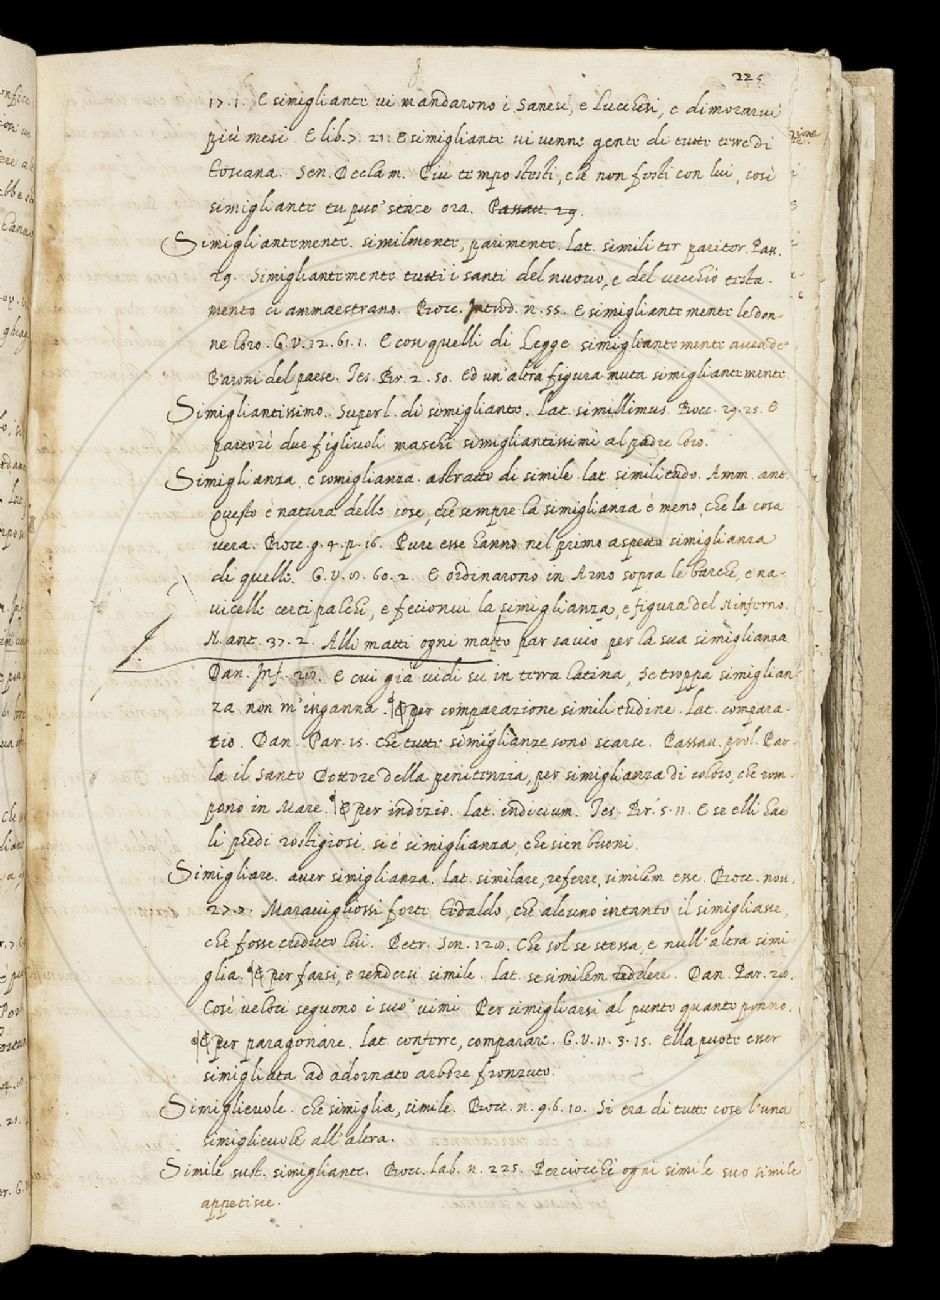 225
17. 1. E simigliante vi mandarono i Sanesi, e Lucchesi, e dimorarvi
più mesi. E lib. 7. 21. E simigliante vi venne gente di tutte terre di
Toscana. Sen. Declam. Più tempo stesti, che non fosti con lui, così
simigliante tu puo' stare ora. Passav. 29.
Simigliantemente. similmente, parimente. lat. similiter pariter. Pass.
29. Simigliantemente tutti i santi del nuovo, e del vecchio testa-
mento ci ammaestrano. Bocc. Introd. n. 55. E simigliantemente le don-
ne loro. G. V. 12. 61. 1. E con quelli di Legge simigliantemente
Baroni del paese. Tes. Br. 2. 50. Ed un'altra figura muta simigliantemente
Simigliantissimo. Superl. di simigliante. Lat. simillimus. Bocc. 29. 25. E
partorì due figliuoli maschi simigliantissimi al padre loro.
Simiglianza, e somiglianza. astratto di simile. lat. similitudo. Amm. ant.
Questo è natura delle cose, che sempre la simiglianza è meno, che la cosa
vera. Bocc. g. 4. p. 16. Pure esse hanno nel primo aspetto simiglianza
di quelle. G. V. 8. 60. 2. E ordinarono in Arno sopra le barche, e na-
vicelle certi palchi, e fecionvi la simiglianza, e figura del Ninferno.
N. ant. 37. 2. Alli matti ogni matto par savio, per la sua simiglianza
Dan. Inf. 28. E cui già vidi su in terra latina, Se troppa simiglian-
za non m'inganna. ¶ E per comparazione similitudine. Lat. compara-
tio. Dan. Par. 15. Che tutte simiglianze sono scarse. Passav. prol. Par-
la il Santo Dottore della penitenzia, per simiglianza di coloro, che rom-
pono in Mare. ¶ E per indizio. Lat. indicium. Tes. Br. 5. 11. E se elli hae
li piedi rostigiosi si è simiglianza, che sien buoni.
Simigliare. aver simiglianza. lat. similare, referre, similem esse. Bocc. nov.
27. 7. Maravigliossi forte Tedaldo, che alcuno intanto il simigliasse,
che fosse creduto lui. Petr. Son. 128. Che sol se stessa, e null'altra simi
glia. ¶ E per farsi, e rendersi simile. lat. se similem reddere. Dan. Par. 28.
Così veloci seguono i suo' vimi Per simigliarsi al punto quanto ponno.
¶ E per paragonare. Lat. conferre, comparare. G. V. 11. 3. 15. Ella puote esser
simigliata ad adornato arbore fronzuto.
Simiglievole. che simiglia, simile. Bocc. n. 96. 10. Si era di tutte cose l'una
simiglievole all'altra.
Simile sust. simigliante. Bocc. Lab. n. 225. Perciocchè ogni simile suo simile
appetisce.